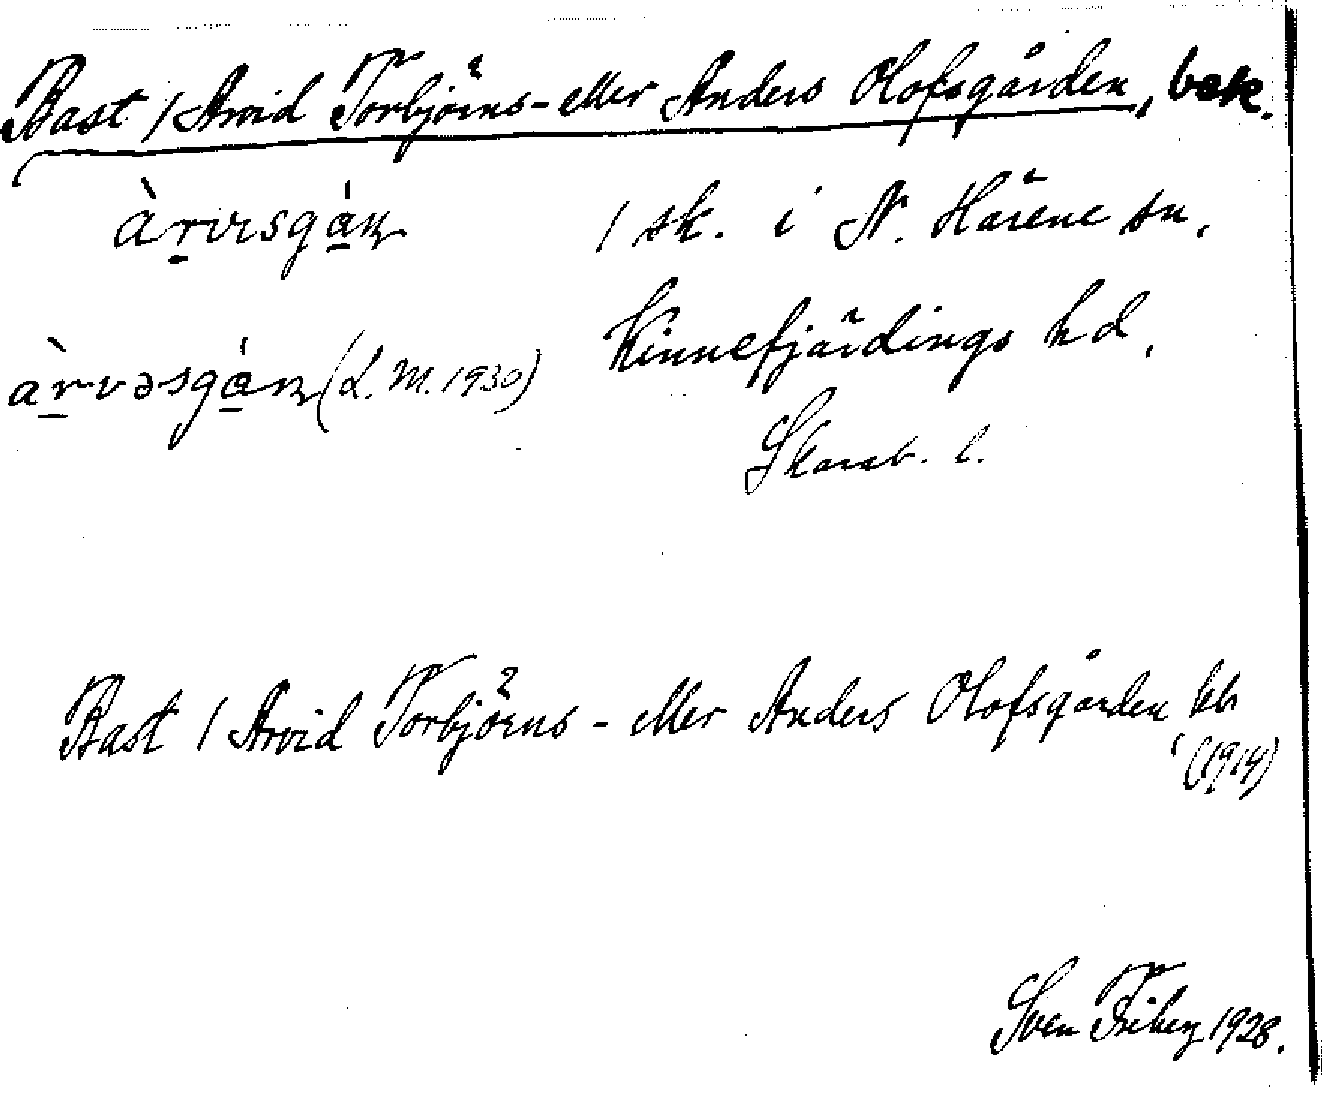 Bast 1 Arvid Torbjörns- eller Anders Olofsgården, bok.
àrvɪsgán 1 sk. i N. Härene sn,
àrvəsgán (L. M. 1930) Kinnefjärdings hd,
Skarab. l.
Bast 1 Arvid Torbjörns - eller Anders Olofsgården
(1914)
Sven Friberg 1928.